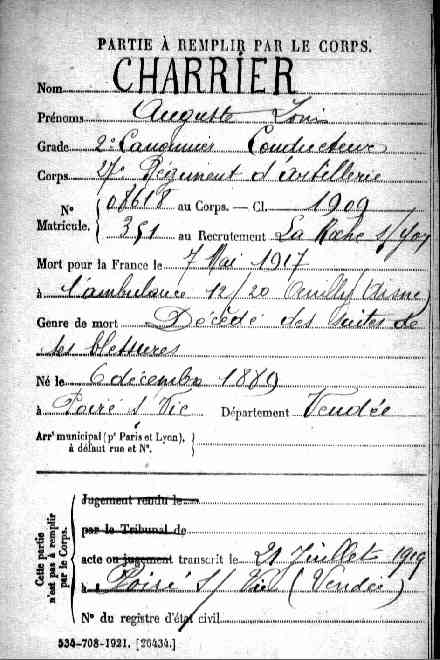 PARTIE À REMPLIR PAR LE CORPS.
Nom CHARRIER
Prénoms Auguste Louis
Grade 2e Canonnier Conducteur
Corps 27e Régiment d'artillerie
No Matricule. 08618 au Corps. — Cl. 1909
351 au Recrutement La Roche s/Yon
Mort pour la France le 7 Mai 1917
à l'ambulance 12/20 (Aisne)
Genre de mort Décédé des suites de
ses blessures
Né le 6 décembre 1889
à Poiré s/ Vie Département Vendée
Arrt municipal (pr Paris et Lyon), à défaut rue et No.
Cette partie n'est pas à remplir par le Corps.
Jugement rendu le
par le Tribunal de
acte ou jugement transcrit le 21 Juillet 1919
à Poiré s/ Vie (Vendée)
No du registre d'état civil
534-708-1921. [26434.]